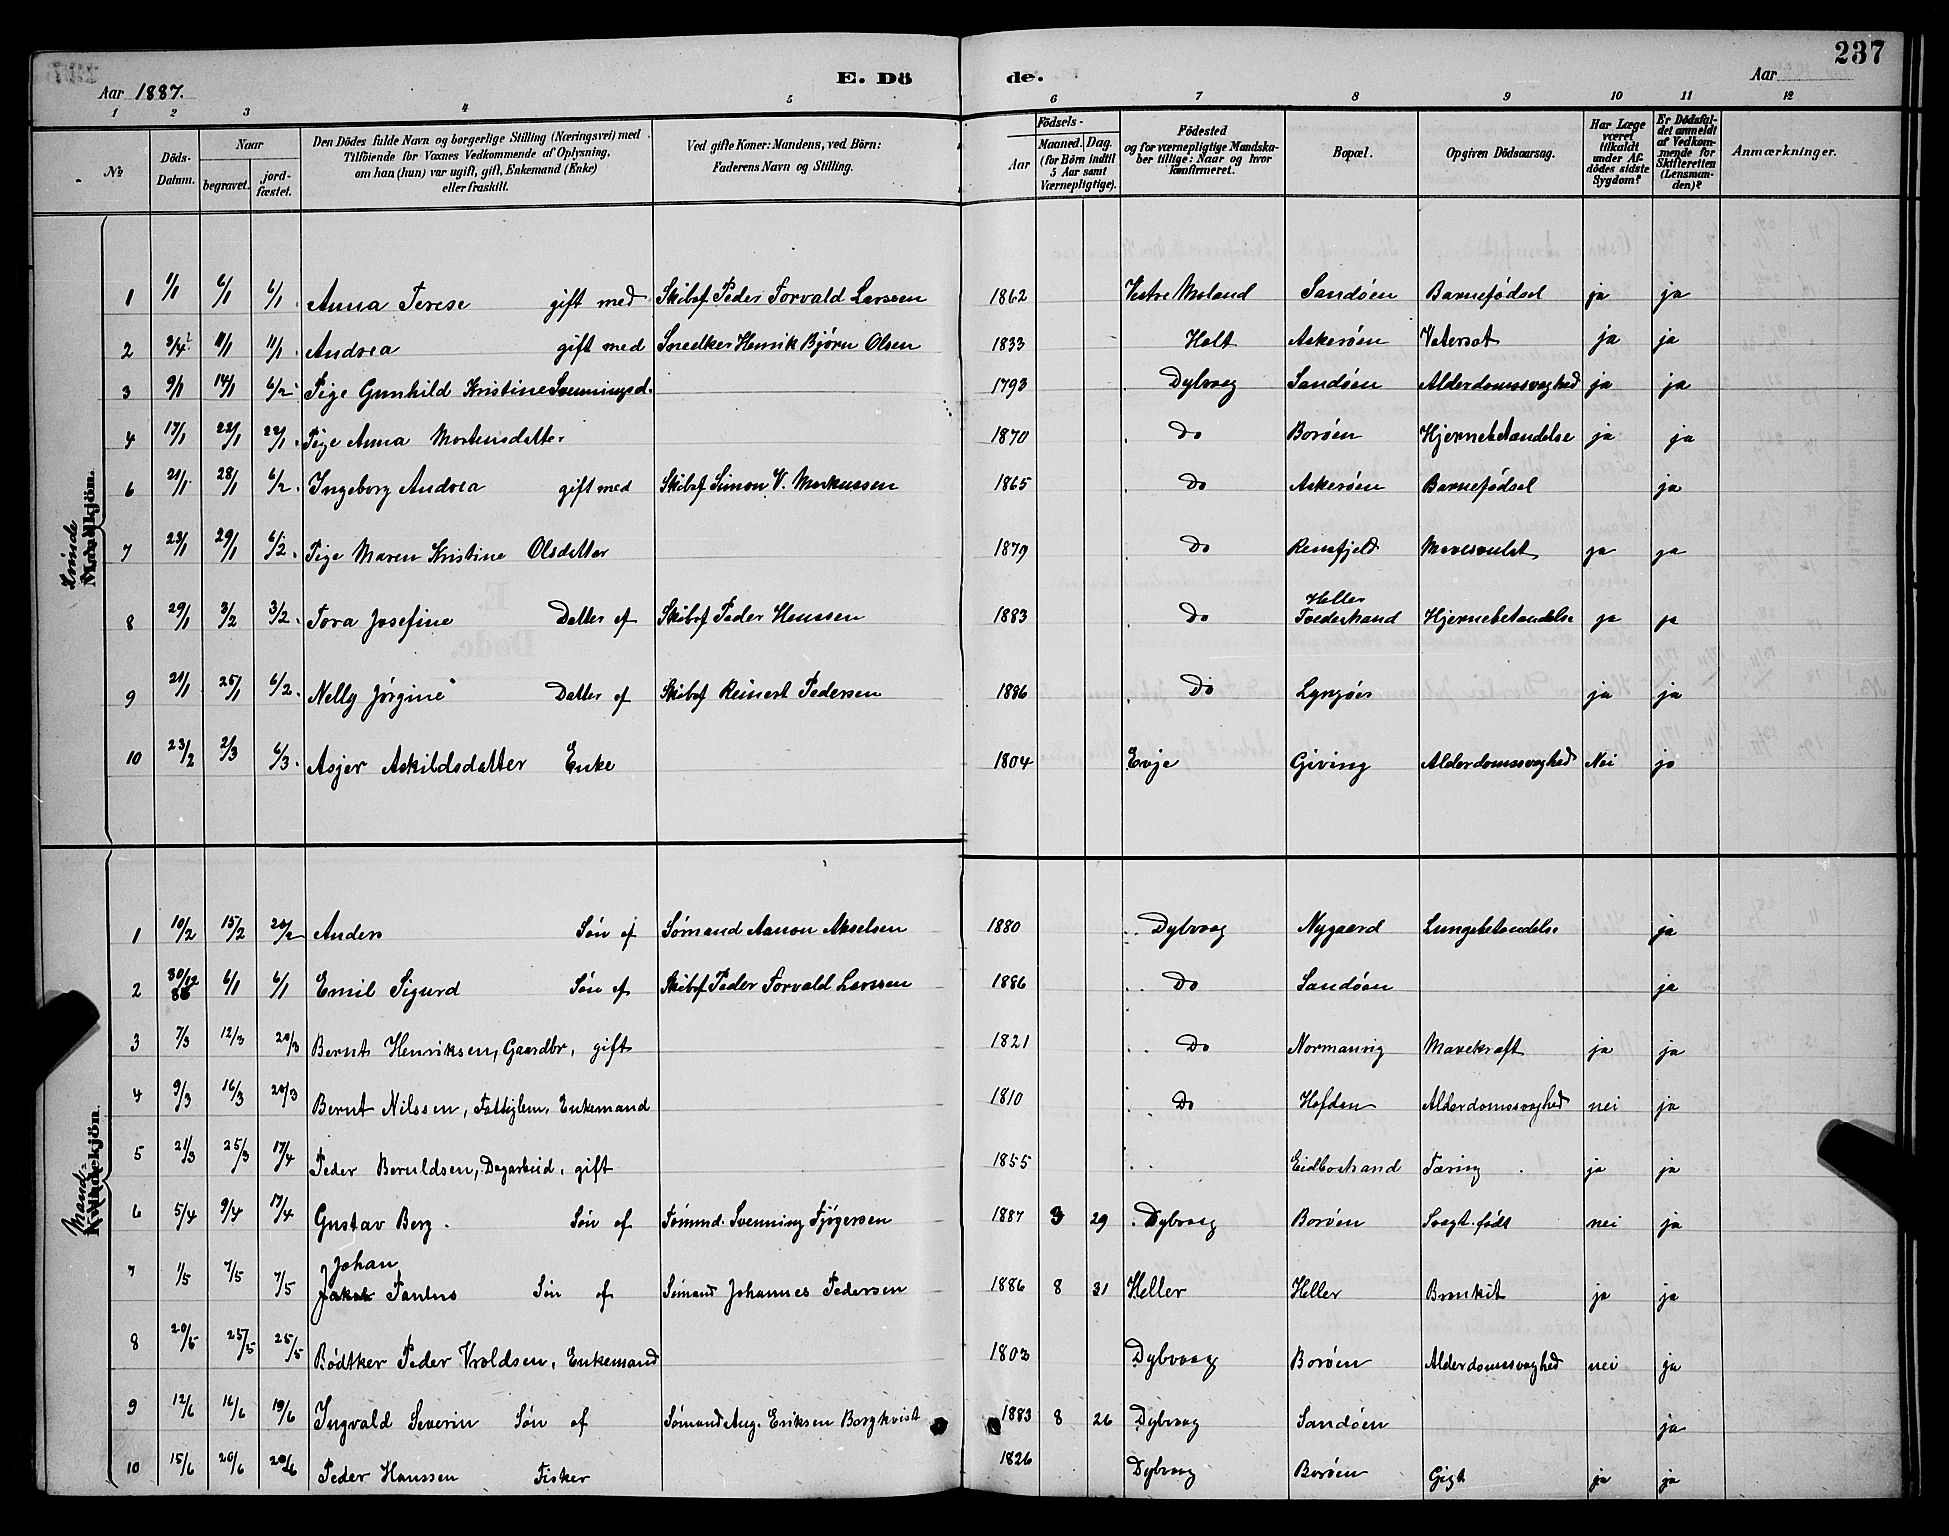 237
Aar 1887.
E. Dö de.
Aar
1 2 3 4 5 6 7 8 9 10 11 12
№
Döds-Datum.
Naar begravet. jordfæstet.
Den Dödes fulde Navn og borgerlige Stilling (Næringsvei) med Tilföiende for Voxnes Vedkommende af Oplysning, om han (hun) var ugift, gift, Enkemand (Enke) eller fraskilt.
Ved gifte Koner: Mandens, ved Börn: Faderens Navn og Stilling.
Födsels-
Aar Maaned. Dag. (for Börn indtil 5 Aar samt Værnepligtige).
Födested og for værnepligtige Mandskaber tillige: Naar og hvor konfirmeret.
Bopæl.
Opgiven Dödsaarsag.
Har Læge været tilkaldt under Afdödes sidste Sygdom?
Er Dödsfaldet anmeldt af Vedkommende for Skifteretten (Lensmanden)?
Anmærkninger.
Kvinde
Mandkjön.
1 1/1 6/1 6/1 Anna Terese gift med Skibsf Peder Torvald Larssen 1862 Vestre Moland Sandøen Barnefødsel ja ja
2 11/1 11/1 Andrea gift med Snedker Henrik Bjørn Olsen 1833 Holt Askerøen Vatersot ja ja
3 9/1 14/1 6/2 Pige Gunhild Kristine Svenningsd. 1793 Dybvaag Sandøen Alderdomssvaghed ja ja
4 17/1 22/1 22/1 Pige Anna Mortensdatter 1870 Do Borøen Hjernebetændelse ja ja
6 21/1 28/1 6/2 Ingeborg Andrea gift med Skibsf Simon V. Markussen 1865 Do Askerøen Barnefødsel ja
7 23/1 29/1 6/2 Pige Maren Kristine Olsdatter 1879 Do ja ja
8 29/1 3/2 3/2 Tora Josefine Datter af Skibsf Peder Hanssen 1883 Do Heller Tvedestrand Hjernebetændelse ja ja
9 21/1 25/1 6/2 Nelly Jørgine Datter af Skibsf Reinert Pedersen 1886 Do Lyngøer ja ja
10 23/2 2/3 6/3 Asjer Askildsdatter Enke 1804 Evje Giving Alderdomssvaghed Nei ja
Mand-
Kvindekjön.
1 10/2 15/2 20/2 Anders Søn af Sømand Aanon Akselsen 1880 Dybvaag Nygaard Lungebetændelse ja
2 30/12 86 6/1 6/1 Emil Sigurd Søn af Skibsf Peder Torvald Larssen 1886 Do Sandøen ja
3 7/3 12/3 20/3 Bernt Henriksen, Gaardbr, gift 1821 Do Normanvig Mavekræft ja ja
4 9/3 16/3 20/3 Bernt Nilssen, Fattiglem, Enkemand 1810 Do Alderdomssvaghed nei ja
5 21/3 25/3 17/4 Peder Beruldsen, Dagarbeid, gift 1855 Eidbostrand Tæring ja ja
6 5/4 9/4 17/4 Gustav Berg Søn af Svenning Tjøgersen 1887 3 29 Dybvaag Borøen Svagt. født nei ja
7 1/5 7/5 7/5 Johan Jakob Søn af Sømand Johannes Pedersen 1886 8 31 Heller Heller Bronkit ja ja
8 20/5 25/5 25/5 Bødtker Peder Vroldsen, Enkemand 1803 Dybvaag Borøen Alderdomssvaghed nei ja
9 12/6 16/6 19/6 Ingvald Severin Søn af Sømand Aug. Eriksen Borgkvist 1883 8 26 Dybvaag Sandøen ja
10 15/6 20/6 20/6 Peder Hanssen Fisker 1826 Dybvaag Borøen Gigt ja ja